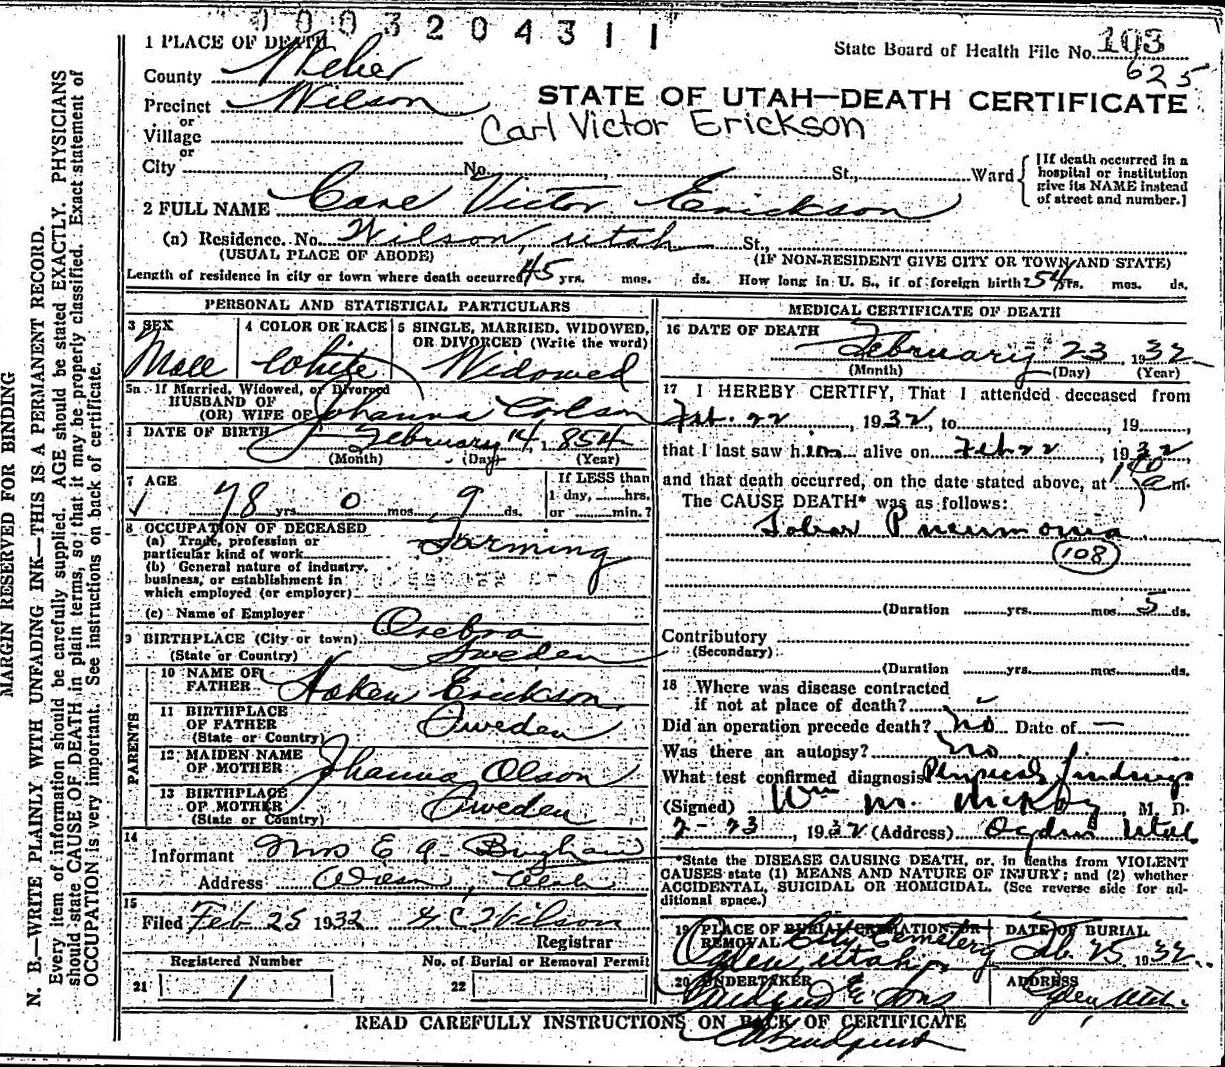 0003204311
1 PLACE OF DEATH
County Weber
Precinct Wilson
or
Village
or
City No. St., Ward
State Board of Health File No. 103
625
STATE OF UTAH—DEATH CERTIFICATE
Carl Victor Erickson
[If death occurred in a
hospital or institution
give its NAME instead
of street and number.]
2 FULL NAME Carl Victor Erickson
(a) Residence. No. Wilson, Utah St.,
(USUAL PLACE OF ABODE) (IF NON-RESIDENT GIVE CITY OR TOWN AND STATE)
Length of residence in city or town where death occurred 45 yrs. mos. ds. How long in U. S., if of foreign birth? 54 yrs. mos. ds.
PERSONAL AND STATISTICAL PARTICULARS
3 SEX
Male
4 COLOR OR RACE
White
5 SINGLE, MARRIED, WIDOWED,
OR DIVORCED (Write the word)
Widowed
5a If Married, Widowed, or Divorced
HUSBAND OF
(OR) WIFE OF Johanna Carlson
DATE OF BIRTH February 14, 1854
(Month) (Day) (Year)
7 AGE
78 yrs. 0 mos. 9 ds.
If LESS than
1 day, hrs.
or min.?
8 OCCUPATION OF DECEASED
(a) Trade, profession or
particular kind of work Farming
(b) General nature of industry,
business, or establishment in
which employed (or employer)
(c) Name of Employer
9 BIRTHPLACE (City or town) Orebro
(State or Country) Sweden
PARENTS
10 NAME OF
FATHER Hoken Erickson
11 BIRTHPLACE
OF FATHER Sweden
(State or Country)
12 MAIDEN NAME
OF MOTHER Jhanna Olson
13 BIRTHPLACE
OF MOTHER Sweden
(State or Country)
14
Informant Mrs E A Bingham
Address Utah
15
Filed Feb 25 1932 Wilson
Registrar
Registered Number No. of Burial or Removal Permit
21 1 22
MEDICAL CERTIFICATE OF DEATH
16 DATE OF DEATH
February 23 1932
(Month) (Day) (Year)
17 I HEREBY CERTIFY, That I attended deceased from
Feb. 22, 1932, to , 19
that I last saw him alive on Feb 22, 1932
and that death occurred, on the date stated above, at a m.
The CAUSE DEATH* was as follows:
Lobar Pneumonia
108
(Duration yrs. mos. 5 ds.
Contributory
(Secondary)
(Duration yrs. mos. ds.
18 Where was disease contracted
if not at place of death?
Did an operation precede death? No Date of —
Was there an autopsy? No
What test confirmed diagnosis Physical findings
(Signed) Wm M. McKay, M. D.
2-23, 1932 (Address) Ogden Utah
*State the DISEASE CAUSING DEATH, or, in deaths from VIOLENT
CAUSES state (1) MEANS AND NATURE OF INJURY; and (2) whether
ACCIDENTAL, SUICIDAL OR HOMICIDAL. (See reverse side for ad-
ditional space.)
19 PLACE OF BURIAL CREMATION OR
REMOVAL City Cemetery
Ogden Utah
DATE OF BURIAL
Feb. 25 1932
20 UNDERTAKER
Lindquist & Sons
ADDRESS
Ogden, Utah
READ CAREFULLY INSTRUCTIONS ON BACK OF CERTIFICATE
Lindquist
MARGIN RESERVED FOR BINDING
N. B.—WRITE PLAINLY WITH UNFADING INK—THIS IS A PERMANENT RECORD.
Every item of information should be carefully supplied. AGE should be stated EXACTLY. PHYSICIANS
should state CAUSE OF DEATH in plain terms, so that it may be properly classified. Exact statement of
OCCUPATION is very important. See instructions on back of certificate.